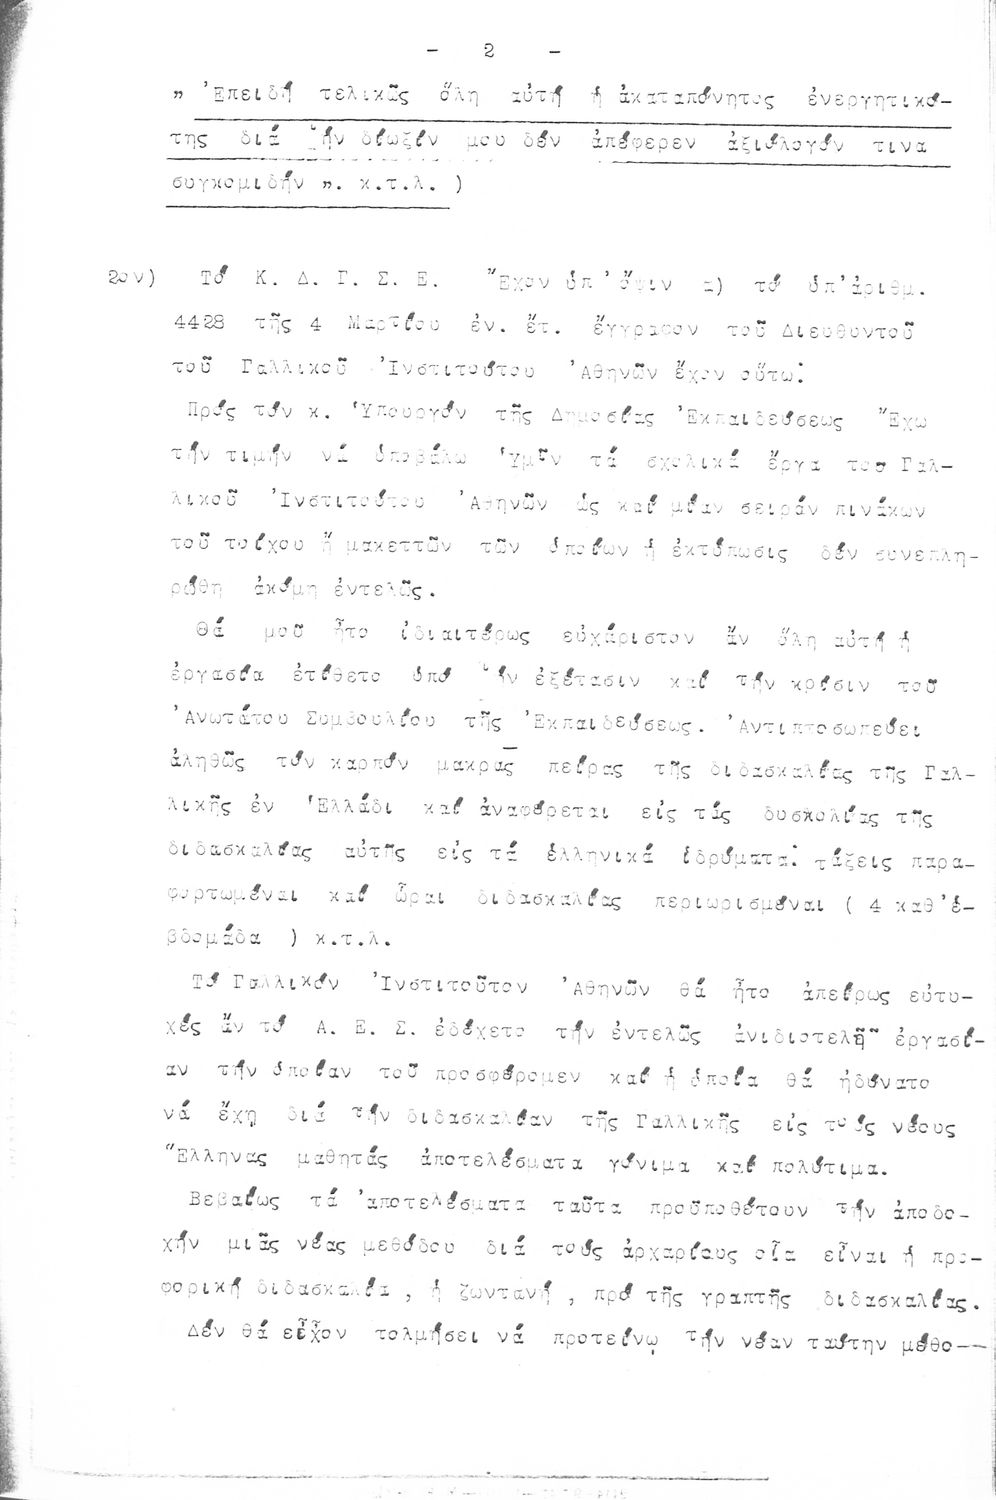 - 2 -
" Ἐπειδή τελικῶς ὅλη αὐτή ἡ ἀκαταπόνητος ἐνεργητικό-
της διά τήν δίωξίν μου δέν ἀπέφερεν ἀξιόλογόν τινα
συγκομιδήν ". κ.τ.λ. )
2ον) Τό Κ. Δ. Γ. Σ. Ε. Ἔχον ὑπ' ὄψιν α) τό ὑπ' ἀριθμ.
4428 τῆς 4 Μαρτίου ἐν. ἔτ. ἔγγραφον τοῦ Διευθυντοῦ
τοῦ Γαλλικοῦ Ἰνστιτούτου Ἀθηνῶν ἔχον οὕτω:
Πρός τόν κ. Ὑπουργόν τῆς Δημοσίας Ἐκπαιδεύσεως Ἔχω
τήν τιμήν νά ὑποβάλω Ὑμῖν τά σχολικά ἔργα του Γαλ-
λικοῦ Ἰνστιτούτου Ἀθηνῶν ὡς καί μίαν σειράν πινάκων
τοῦ τοίχου ἤ μακεττῶν τῶν ὁποίων ἡ ἐκτύπωσις δέν συνεπλη-
ρώθη ἀκόμη ἐντελῶς.
Θά μοῦ ἦτο ἰδιαιτέρως εὐχάριστον ἄν ὅλη αὐτή ἡ
ἐργασία ἐτίθετο ὑπό τήν ἐξέτασιν καί τήν κρίσιν τοῦ
Ἀνωτάτου Συμβουλίου τῆς Ἐκπαιδεύσεως. Ἀντιπροσωπεύει
ἀληθῶς τόν καρπόν μακρᾶς πείρας τῆς διδασκαλίας τῆς Γαλ-
λικῆς ἐν Ἑλλάδι καί ἀναφέρεται εἰς τάς δυσκολίας τῆς
διδασκαλίας αὐτῆς εἰς τά ἑλληνικά ἱδρύματα: τάξεις παρα-
φορτωμέναι καί ὧραι διδασκαλίας περιωρισμέναι ( 4 καθ' ἑ-
βδομάδα ) κ.τ.λ.
Τό Γαλλικόν Ἰνστιτοῦτον Ἀθηνῶν θά ἦτο ἀπείρως εὐτυ-
χές ἄν τό Α. Ε. Σ. ἐδέχετο τήν ἐντελῶς ἀνιδιοτελῆ ἐργασί-
αν τήν ὁποίαν τοῦ προσφέρομεν καί ἡ ὁποία θά ἠδύνατο
νά ἔχῃ διά τήν διδασκαλίαν τῆς Γαλλικῆς εἰς τούς νέους
Ἕλληνας μαθητάς ἀποτελέσματα γόνιμα καί πολύτιμα.
Βεβαίως τά ἀποτελέσματα ταῦτα προϋποθέτουν τήν ἀποδο-
χήν μιᾶς νέας μεθόδου διά τούς ἀρχαρίους οἵα εἶναι ἡ προ-
φορική διδασκαλία , ἡ ζωντανή , πρό τῆς γραπτῆς διδασκαλίας.
Δέν θά εἶχον τολμήσει νά προτείνω τήν νέαν ταύτην μέθο--